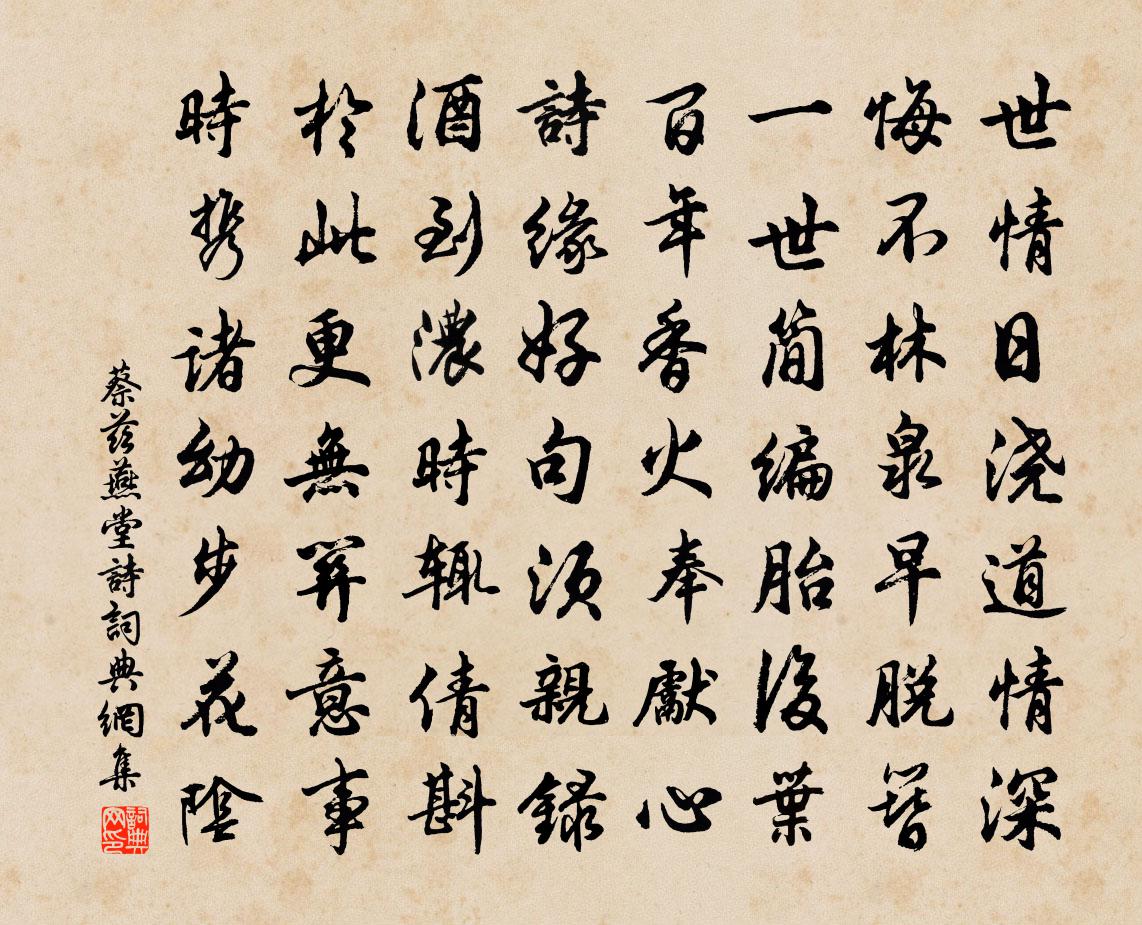 世情日浇道情深
悔不林泉早脱簪
一世简编胎後葉
百年香火奉獻心
詩缘好句須親錄
酒到濃時辄倩斟
於此更無関意事
時携诸幼步花陰
蔡兹燕堂詩詞典網集
詞典网印